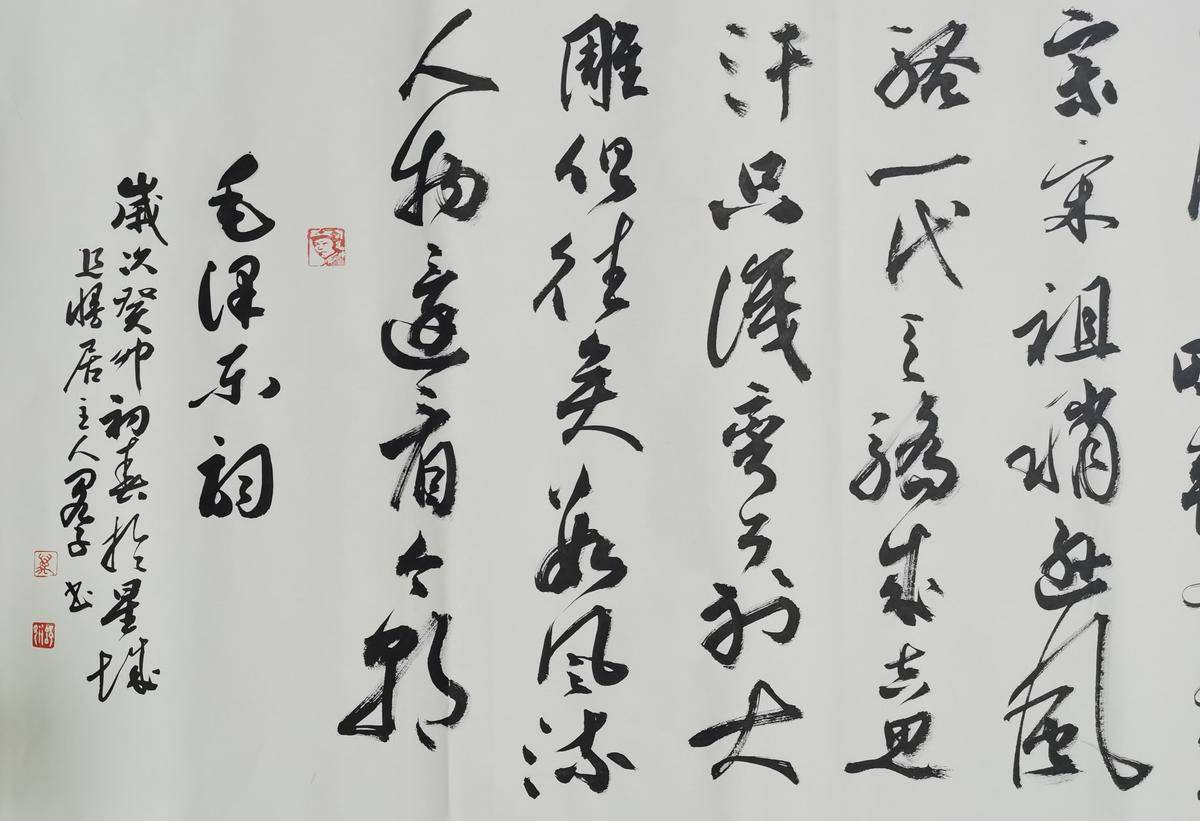 宗宋祖稍逊风
骚一代天骄成吉思
汗只识弯弓射大
雕俱往矣数风流
人物还看今朝
毛泽东词
岁次癸卯初春于星城
居主人
书